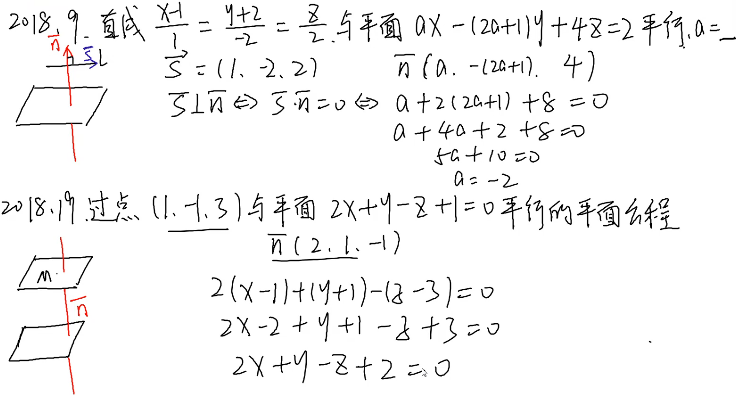 2018.9. 直线 \frac{x-1}{1} = \frac{y+2}{-2} = \frac{z}{2} 与平面 ax-(2a+1)y+4z=2 平行,a=_
n S L
S = (1. -2. 2) n(a. -(2a+1). 4)
S⊥n ⇔ S·n=0 ⇔ a+2(2a+1)+8=0
a+4a+2+8=0
5a+10=0
a=-2
2018.19 过点 (1.-1.3) 与平面 2x+y-z+1=0 平行的平面方程
n(2. 1. -1)
M. n
2(x-1)+(y+1)-(z-3)=0
2x-2+y+1-z+3=0
2x+y-z+2=0